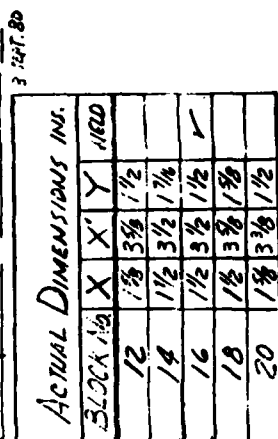 3 SEPT. 80
ACTUAL DIMENSIONS INS.
BLOCK NO. X X' Y HELD
12 1 5/8 3 5/8 1 1/2
14 1 1/2 3 1/2 1 7/16
16 1 1/2 3 1/2 1 1/2 ✓
18 1 1/2 3 5/8 1 5/8
20 1 5/8 3 3/8 1 1/2